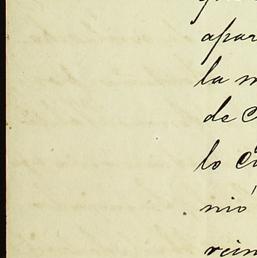 apar
la m
de C
lo Ca
nió
rein